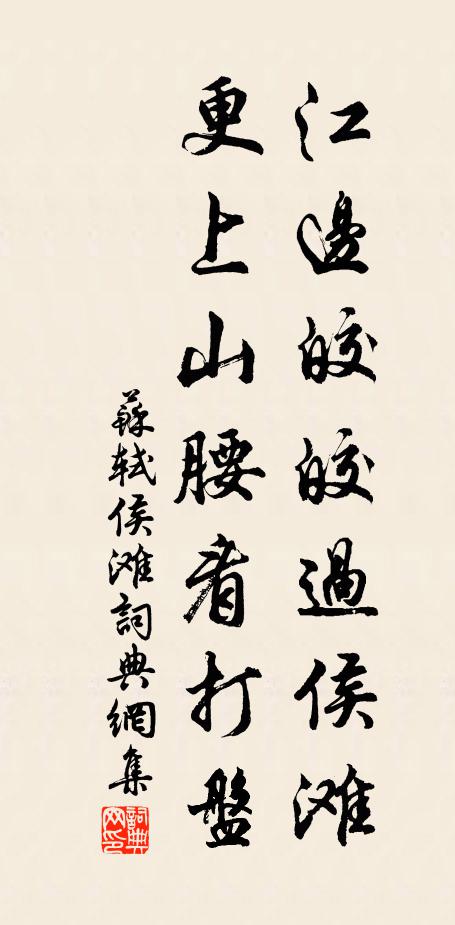 江邊皎皎過侯滩
更上山腰看打盤
蘇軾侯滩詞典網集
詞典网印